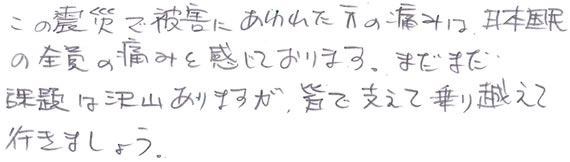 この震災で被害にあわれた方の痛みは、日本国民
の全員の痛みと感じております。まだまだ
課題は沢山ありますが、皆で支えて乗り越えて
行きましょう。